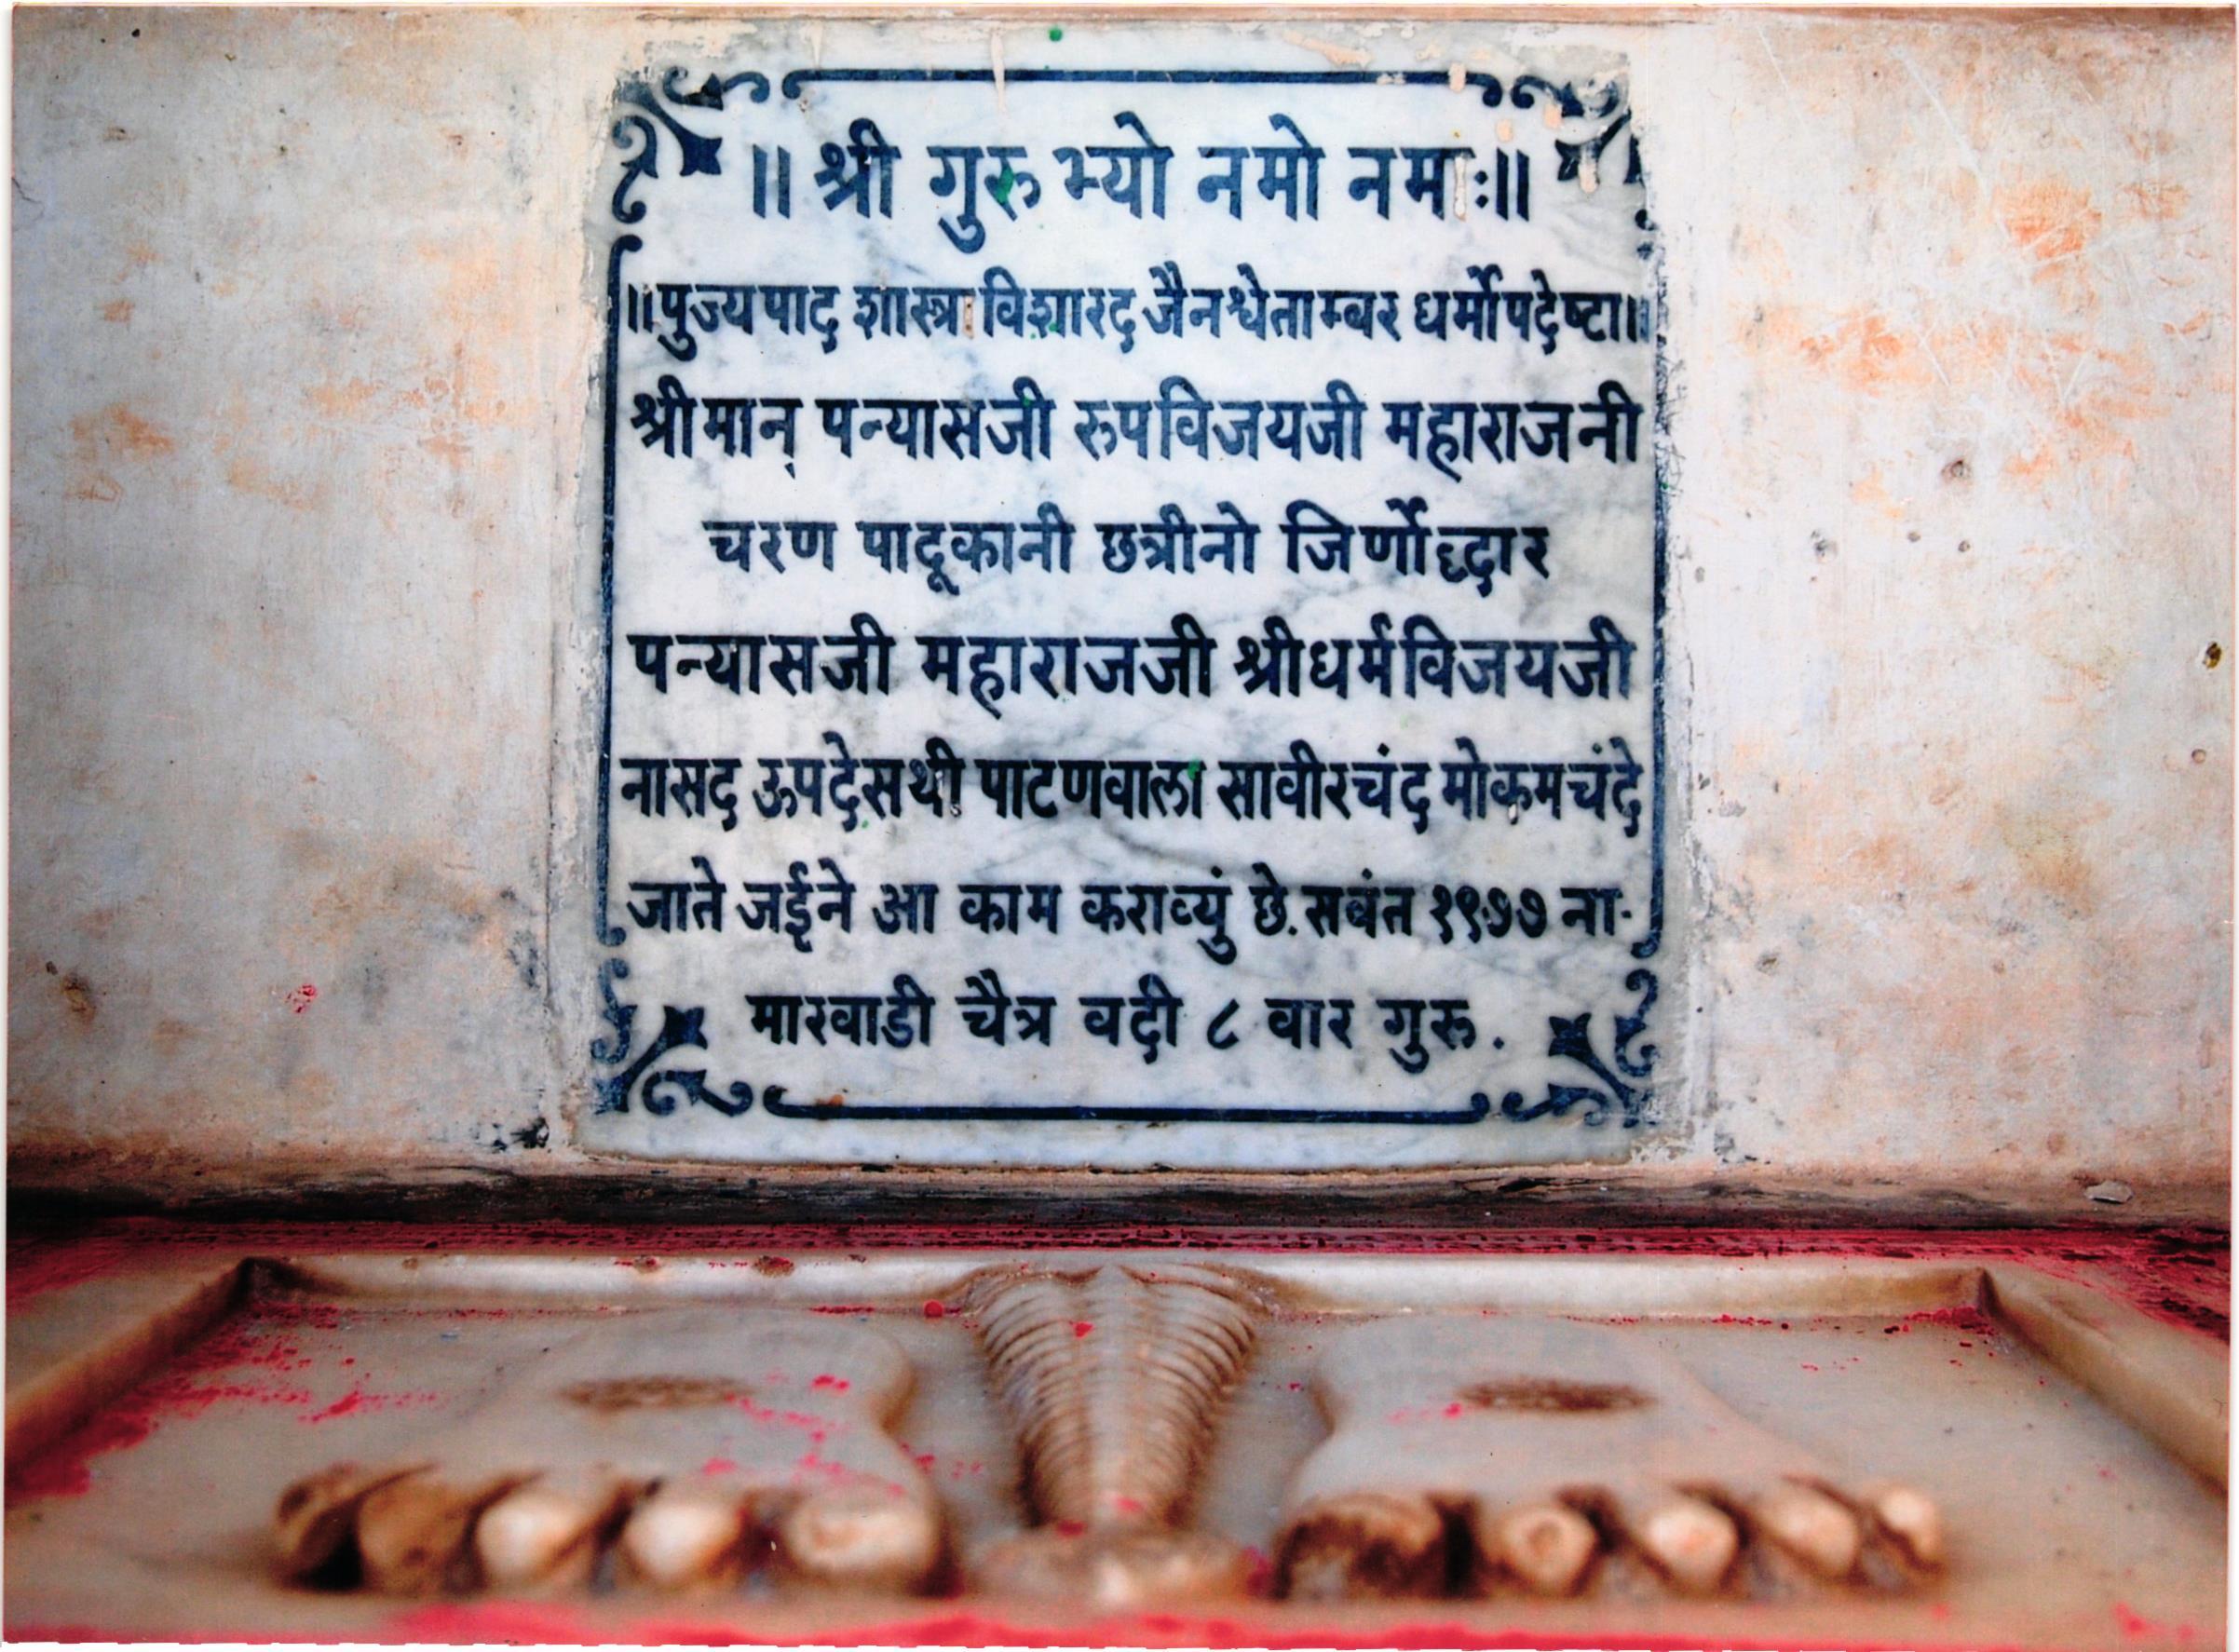 ॥ श्री गुरु भ्यो नमो नमः॥
॥पुज्यपाद शास्त्र विशारद जैनश्वेताम्बर धर्मोपदेष्टा॥
श्रीमान् पन्यासजी रुपविजयजी महाराजनी
चरण पादूकानी छत्रीनो जिर्णोद्धार
पन्यासजी महाराजजी श्रीधर्मविजयजी
नासद ऊपदेसथी पाटणवाला सावीरचंद मोकमचंदे
जाते जईने आ काम कराव्युं छे. सवंत १९७७ ना-
मारवाडी चैत्र वदी ८ वार गुरू.